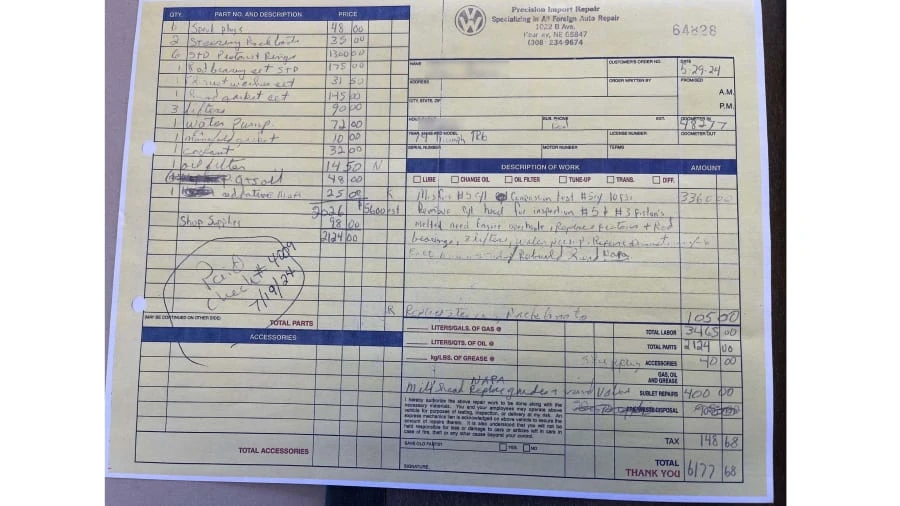 Precision Import Repair
Specializing in All Foreign Auto Repair
1022 B Ave.
Kearney, NE 68847
(308) 234-9674
64828
QTY. PART NO. AND DESCRIPTION PRICE
6 Spark plugs 48 00
2 Steering Rack 35 00
6 STD Piston Rings 1300 00
1 Rod bearing set STD 175 00
1 Thrust washer set 31 50
1 gasket set 145 00
3 Lifters 90 00
1 Water Pump 72 00
1 Manifold gasket 10 00
1 Coolant 32 00
1 oil filter 14 50 N
48 00
1 additive 25 00
2026 5600 est
Shop Supplies 98 00
2124 00
Paid
Check # 4009
7/19/24
(MAY BE CONTINUED ON OTHER SIDE)
TOTAL PARTS
ACCESSORIES
TOTAL ACCESSORIES
NAME
CUSTOMER'S ORDER NO.
DATE
5-29-24
ADDRESS
ORDER WRITTEN BY
PROMISED
A.M.
CITY, STATE, ZIP
P.M.
BUS. PHONE
EST.
ODOMETER IN
48277
YEAR, MAKE AND MODEL
Triumph TR6
LICENSE NUMBER
ODOMETER OUT
SERIAL NUMBER
MOTOR NUMBER
TERMS
DESCRIPTION OF WORK AMOUNT
LUBE CHANGE OIL OIL FILTER TUNE-UP TRANS. DIFF.
Misfire #5 cyl Compression test #5 cyl 3360 00
Remove cyl head for inspection #5 & #3 Piston's
melted need Engine overhaul, Replace pistons & Rod
bearings, 3 lifters, water pump,
Rebuild NAPA
R 105 00
LITERS/GALS. OF GAS @
LITERS/QTS. OF OIL @
kg/LBS. OF GREASE @
TOTAL LABOR 3465 00
TOTAL PARTS 2124 00
Shipping ACCESSORIES 40 00
GAS, OIL AND GREASE
NAPA
Mill head Replace guides and Valve SUBLET REPAIRS 400 00
I hereby authorize the above repair work to be done along with the
necessary materials. You and your employees may operate above
vehicle for purposes of testing, inspection, or delivery at my risk. An
express mechanic's lien is acknowledged on above vehicle to secure the
amount of repairs thereto. It is also understood that you will not be
held responsible for loss or damage to cars or articles left in cars in
case of fire, theft or any other cause beyond your control.
SAVE OLD PARTS? YES NO
SIGNATURE
TAX 148 68
TOTAL
THANK YOU 6177 68